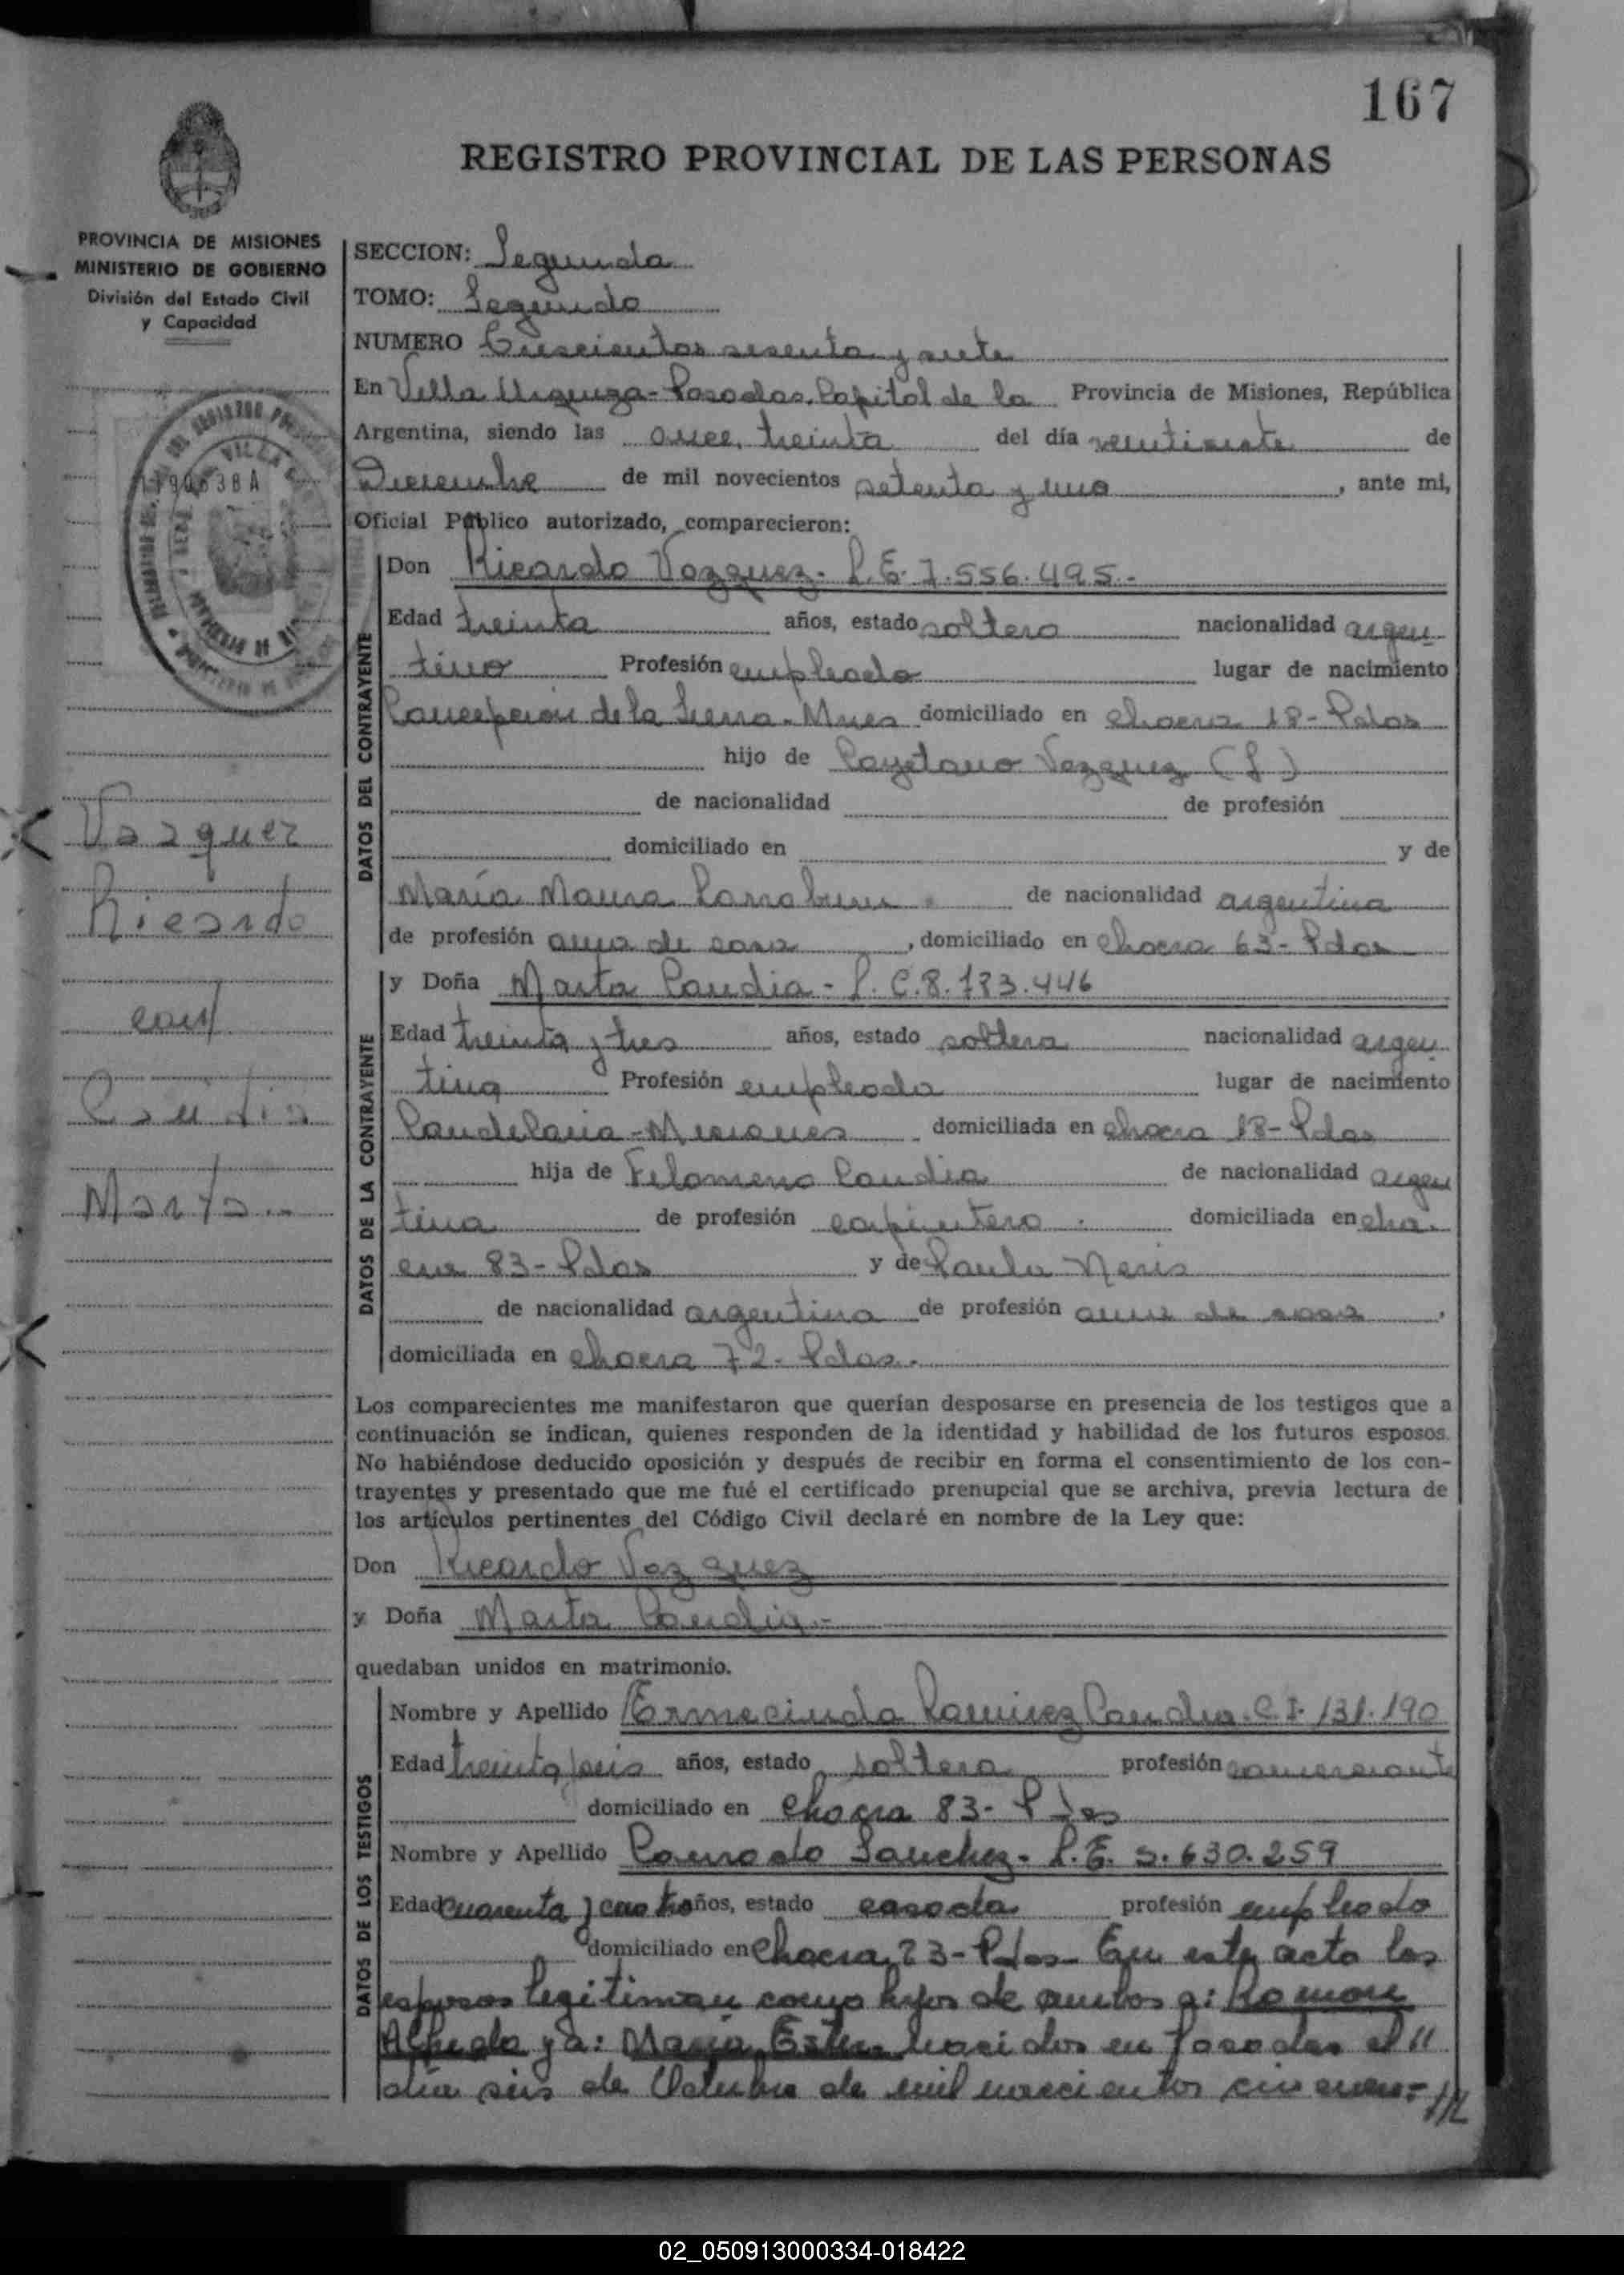 167
REGISTRO PROVINCIAL DE LAS PERSONAS
PROVINCIA DE MISIONES
MINISTERIO DE GOBIERNO
División del Estado Civil
y Capacidad
SECCION: Segunda
TOMO: Segundo
NUMERO Trescientos sesenta y siete
En Villa Urquiza - Posadas, Capital de la Provincia de Misiones, República
Argentina, siendo las once, treinta del día veintisiete de
Diciembre de mil novecientos setenta y uno, ante mi,
Oficial Público autorizado, comparecieron:
DATOS DEL CONTRAYENTE
Don Ricardo Vazquez - L.E. 7.556.495.-
Edad treinta años, estado soltero nacionalidad argen
tino Profesión empleado lugar de nacimiento
Concepción de la Sierra - Mnes domiciliado en chacra 18 - Pdas
hijo de Cayetano Vazquez (f)
de nacionalidad de profesión
domiciliado en y de
María Maura de nacionalidad argentina
de profesión ama de casa, domiciliado en chacra 63 - Pdas
DATOS DE LA CONTRAYENTE
y Doña Marta Candia - L.C. 8.133.446
Edad treinta y tres años, estado soltera nacionalidad argen
tina Profesión empleada lugar de nacimiento
Candelaria - Misiones domiciliada en chacra 18 - Pdas
hija de Filomeno Candia de nacionalidad argen
tina de profesión carpintero. domiciliada en cha
cra 83 - Pdas y de Paula Neris
de nacionalidad argentina de profesión ama de casa,
domiciliada en chacra 72 - Pdas.
Los comparecientes me manifestaron que querían desposarse en presencia de los testigos que a
continuación se indican, quienes responden de la identidad y habilidad de los futuros esposos.
No habiéndose deducido oposición y después de recibir en forma el consentimiento de los con-
trayentes y presentado que me fué el certificado prenupcial que se archiva, previa lectura de
los artículos pertinentes del Código Civil declaré en nombre de la Ley que:
Don Ricardo Vazquez
y Doña Marta Candia.-
quedaban unidos en matrimonio.
DATOS DE LOS TESTIGOS
Nombre y Apellido Ermecinda Ramirez Candia. C.I. 131.190
Edad treinta y seis años, estado soltera profesión comerciante
domiciliado en Chacra 83 - Pdas
Nombre y Apellido Conrado Sanchez - L.E. 5.630.259
Edad cuarenta y cuatro años, estado casado profesión empleado
domiciliado en Chacra 23 - Pdas - En este acto los
esposos legitiman como hijos de ambos a: Ramon
Alfredo y a: María Ester nacidos en Posadas el "
día seis de Octubre de mil novecientos cincuen- //
Vazquez
Ricardo
con
Candia
Marta
02_050913000334-018422